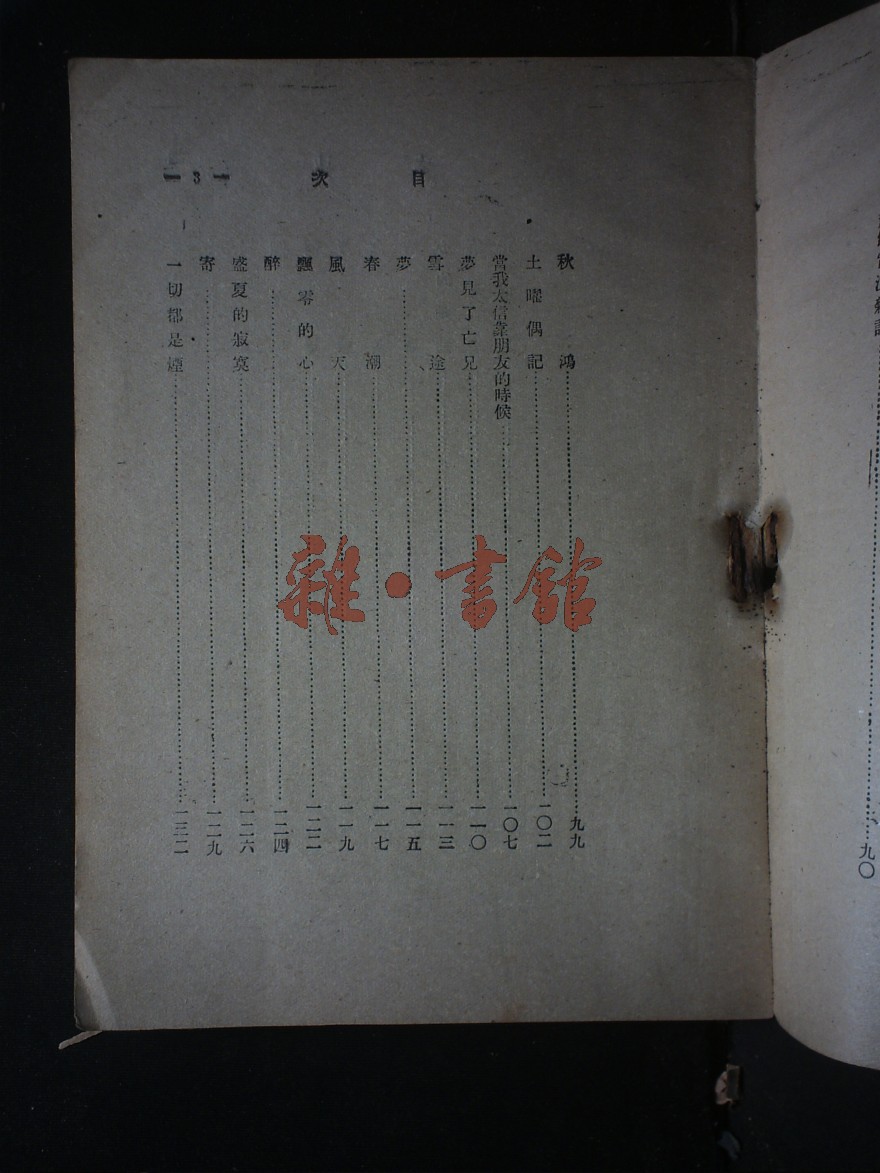 九〇
目次 —3—
秋鴻……九九
土曜偶記……一〇二
當我太信業朋友的時候……一〇七
夢見了亡兄……一一〇
雪途……一一三
夢……一一五
春潮……一一七
風天……一一九
飄零的心……一二二
醉……一二四
盛夏的寂寞……一二六
寄……一二九
一切都是煙……一三二
雜·書館